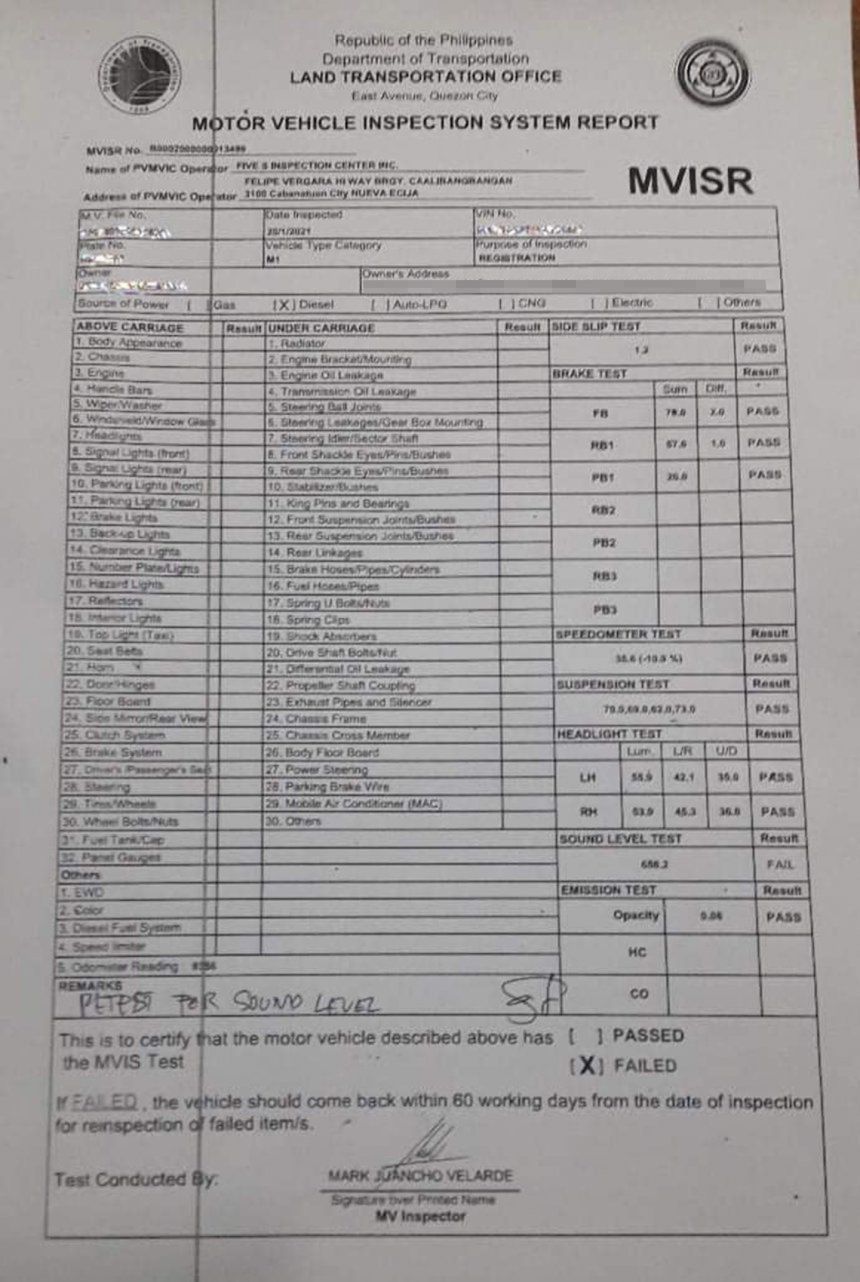 Republic of the Philippines
Department of Transportation
LAND TRANSPORTATION OFFICE
East Avenue, Quezon City
MOTOR VEHICLE INSPECTION SYSTEM REPORT
MVISR No.
Name of PVMVIC Operator FIVE S INSPECTION CENTER INC.
FELIPE VERGARA HI WAY BRGY.
Address of PVMVIC Operator 3100 Cabanatuan City NUEVA ECIJA
MVISR
M.V. File No. Date Inspected VIN No.
20/1/2021
Plate No. Vehicle Type Category Purpose of Inspection
M1 REGISTRATION
Owner Owner's Address
Source of Power [ ] Gas [X] Diesel [ ] Auto-LPG [ ] CNG [ ] Electric [ ] Others
ABOVE CARRIAGE Result UNDER CARRIAGE Result SIDE SLIP TEST Result
1. Body Appearance 1. Radiator
PASS
2. Chassis 2. Engine Bracket/Mounting
3. Engine 3. Engine Oil Leakage BRAKE TEST Result
4. Handle Bars 4. Transmission Oil Leakage Sum Diff.
5. Wiper/Washer 5. Steering Ball Joints
6. Windshield/Window Glass 6. Steering Leakages/Gear Box Mounting FB PASS
7. Headlights 7. Steering Idler/Sector Shaft
8. Signal Lights (front) 8. Front Shackle Eyes/Pins/Bushes RB1 57.0 1.0 PASS
9. Signal Lights (rear) 9. Rear Shackle Eyes/Pins/Bushes
10. Parking Lights (front) 10. Stabilizer/Bushes PB1 PASS
11. Parking Lights (rear) 11. King Pins and Bearings
12. Brake Lights 12. Front Suspension Joints/Bushes RB2
13. Back-up Lights 13. Rear Suspension Joints/Bushes
14. Clearance Lights 14. Rear Linkages PB2
15. Number Plate/Lights 15. Brake Hoses/Pipes/Cylinders
16. Hazard Lights 16. Fuel Hoses/Pipes RB3
17. Reflectors 17. Spring U Bolts/Nuts
18. Interior Lights 18. Spring Clips PB3
19. Top Light (Taxi) 19. Shock Absorbers SPEEDOMETER TEST Result
20. Seat Belts 20. Drive Shaft Bolts/Nut
21. Horn 21. Differential Oil Leakage PASS
22. Door/Hinges 22. Propeller Shaft Coupling SUSPENSION TEST Result
23. Floor Board 23. Exhaust Pipes and Silencer
24. Side Mirror/Rear View 24. Chassis Frame 70.0,69.0,62.0,73.0 PASS
25. Clutch System 25. Chassis Cross Member HEADLIGHT TEST Result
26. Brake System 26. Body Floor Board Lum. L/R U/D
27. Driver's /Passenger's Seat 27. Power Steering
28. Steering 28. Parking Brake Wire LH 42.1 PASS
29. Tires/Wheels 29. Mobile Air Conditioner (MAC)
30. Wheel Bolts/Nuts 30. Others RH 45.3 PASS
31. Fuel Tank/Cap SOUND LEVEL TEST Result
32. Panel Gauges
Others FAIL
1. EWD EMISSION TEST Result
2. Color Opacity PASS
3. Diesel Fuel System
4. Speed limiter HC
5. Odometer Reading
REMARKS CO
RETEST FOR SOUND LEVEL
This is to certify that the motor vehicle described above has [ ] PASSED
the MVIS Test [X] FAILED
If FAILED , the vehicle should come back within 60 working days from the date of inspection
for reinspection of failed item/s.
Test Conducted By: MARK JUANCHO VELARDE
Signature over Printed Name
MV Inspector